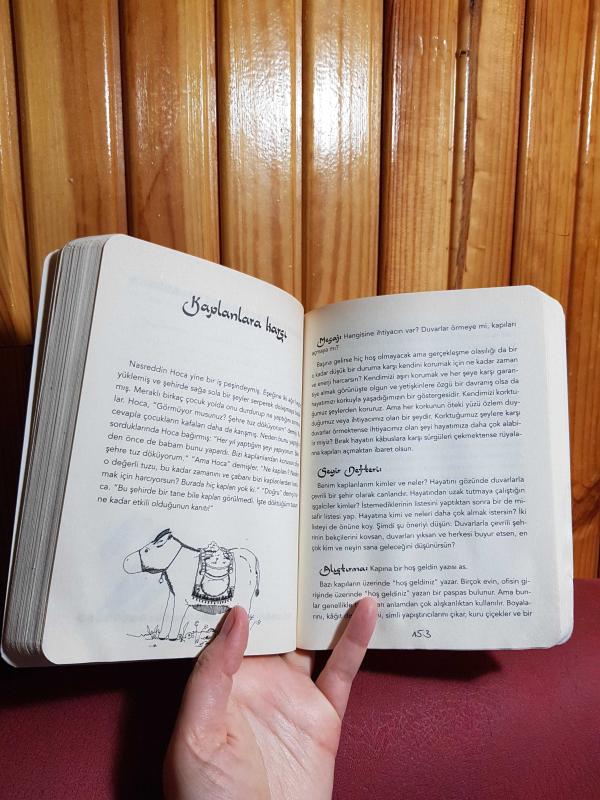 Kaplanlara karşı
Nasreddin Hoca yine bir iş peşindeymiş. Eşeğine iki ağır heybe
yüklemiş ve şehirde sağa sola bir şeyler serperek dolaşmaya başla-
mış. Meraklı birkaç çocuk yolda onu durdurup ne yaptığını sormuş-
lar. Hoca, "Görmüyor musunuz? Şehre tuz döküyorum" demiş. Bu
cevapla çocukların kafaları daha da karışmış. Neden bunu yaptığını
sorduklarında Hoca bağırmış: "Her yıl yaptığım şeyi yapıyorum. Ben-
den önce de babam bunu yapardı. Bizi kaplanlardan korusun diye
şehre tuz döküyorum." "Ama Hoca" demişler. "Ne kaplanı? Neden
o değerli tuzu, bu kadar zamanını ve çabanı bizi kaplanlardan koru-
mak için harcıyorsun? Burada hiç kaplan yok ki." "Doğru" demiş Ho-
ca. "Bu şehirde bir tane bile kaplan görülmedi. İşte döktüğüm tuzun
ne kadar etkili olduğunun kanıtı!"
Mesaj: Hangisine ihtiyacın var? Duvarlar örmeye mi, kapıları
açmaya mı?
Başına gelirse hiç hoş olmayacak ama gerçekleşme olasılığı da bir
o kadar düşük bir duruma karşı kendini korumak için ne kadar zaman
ve enerji harcarsın? Kendimizi aşırı korumak ve her şeye karşı garan-
tiye almak görünüşte olgun ve yetişkinlere özgü bir davranış olsa da
hayatımızı korkuyla yaşadığımızın bir göstergesidir. Kendimizi korktu-
ğumuz şeylerden koruruz. Ama her korkunun öteki yüzü özlem duy-
duğumuz veya ihtiyacımız olan bir şeydir. Korktuğumuz şeylere karşı
duvarlar örmektense ihtiyacımız olan şeyi hayatımıza daha çok alabi-
lir miyiz? Bırak hayatın kâbuslara karşı sürgüleri çekmektense rüyala-
rına kapıları açmaktan ibaret olsun.
Seyir Defteri:
Benim kaplanlarım kimler ve neler? Hayatını gözünde duvarlarla
çevrili bir şehir olarak canlandır. Hayatından uzak tutmaya çalıştığın
işgalciler kimler? İstemediklerinin listesini yaptıktan sonra bir de mi-
safir listesi yap. Hayatına kimi ve neleri daha çok almak istersin? İki
listeyi de önüne koy. Şimdi şu öneriyi düşün: Duvarlarla çevrili şeh-
rinin bekçilerini kovsan, duvarları yıksan ve herkesi buyur etsen, en
çok kim ve neyin sana geleceğini düşünürsün?
Alıştırma: Kapına bir hoş geldin yazısı as.
Bazı kapıların üzerinde "hoş geldiniz" yazar. Birçok evin, ofisin gi-
rişinde üzerinde "hoş geldiniz" yazan bir paspas bulunur. Ama bun-
lar genellikle anlamdan çok alışkanlıktan kullanılır. Boyala-
rını, kâğıt simli yapıştırıcılarını çıkar, kuru çiçekler ve bir
153